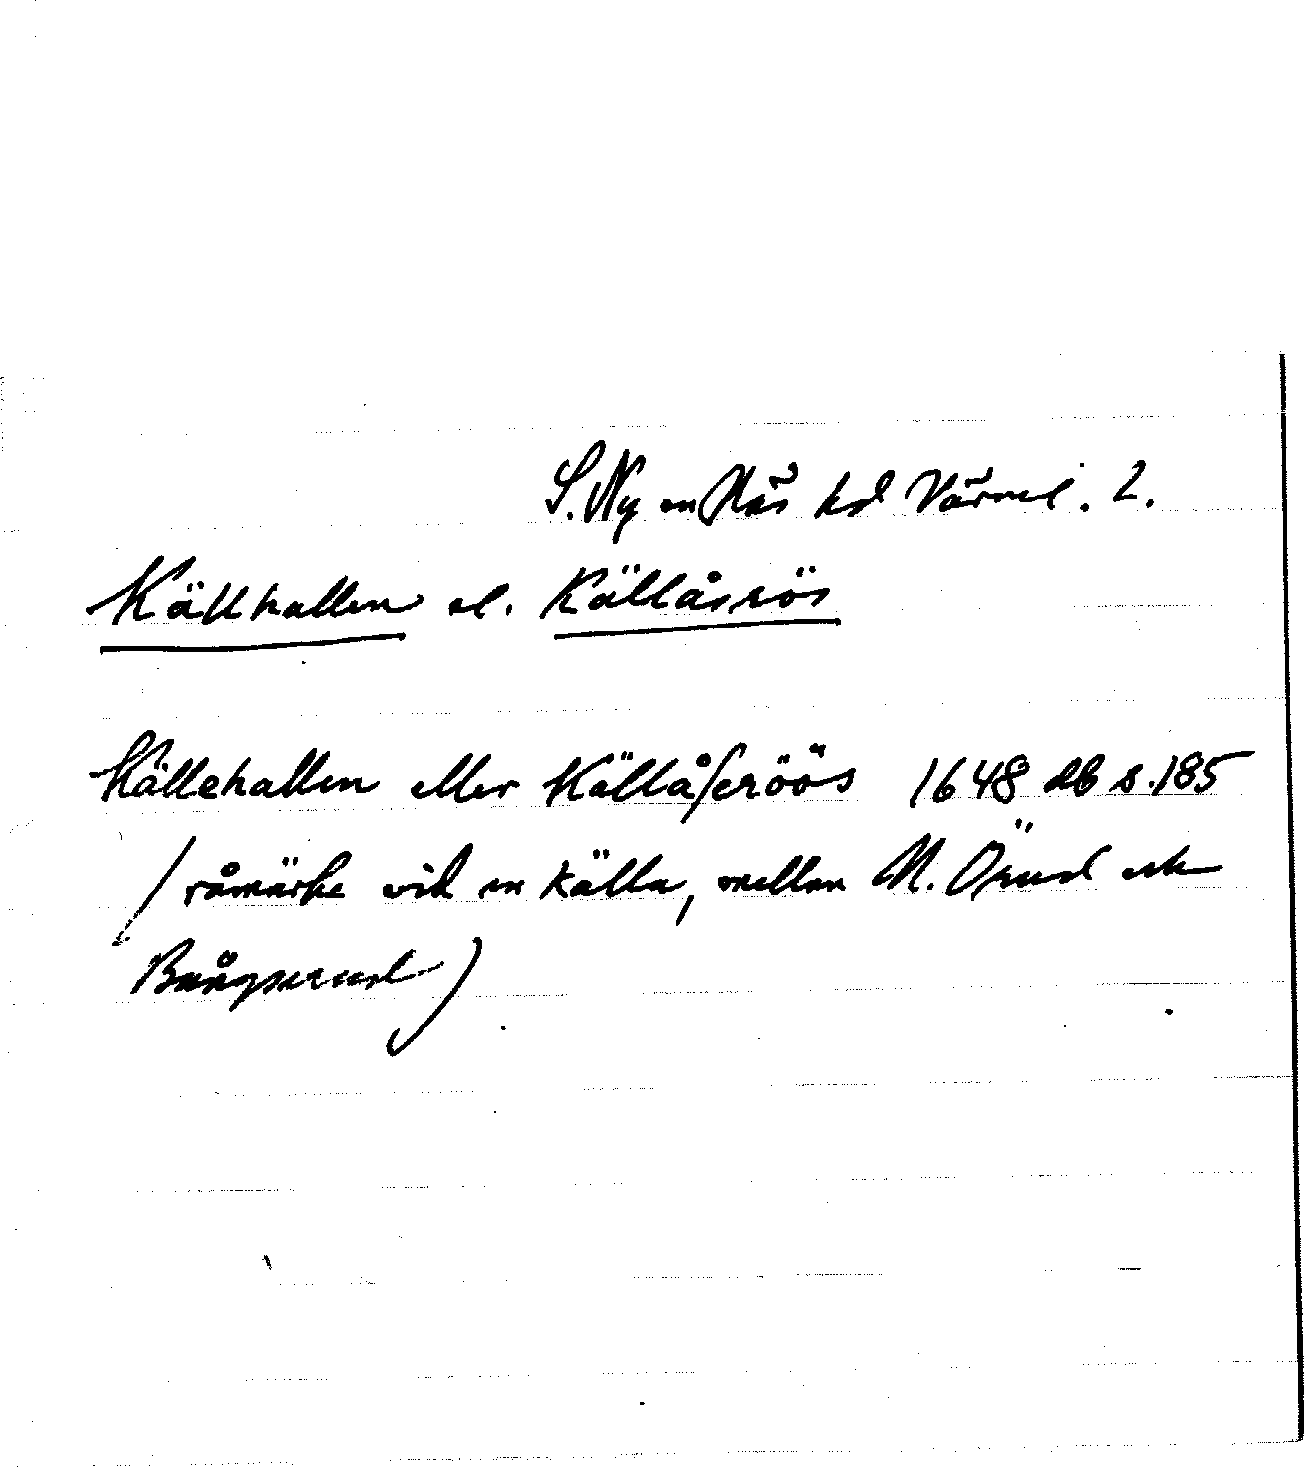 S. Ny sn Näs hd Värml. 2.
Källhallen el. Källåsrös
Källehallen eller Källåseröös 1648 db s. 185
(råmärke vid en källa, mellan N. Ösrud och
)